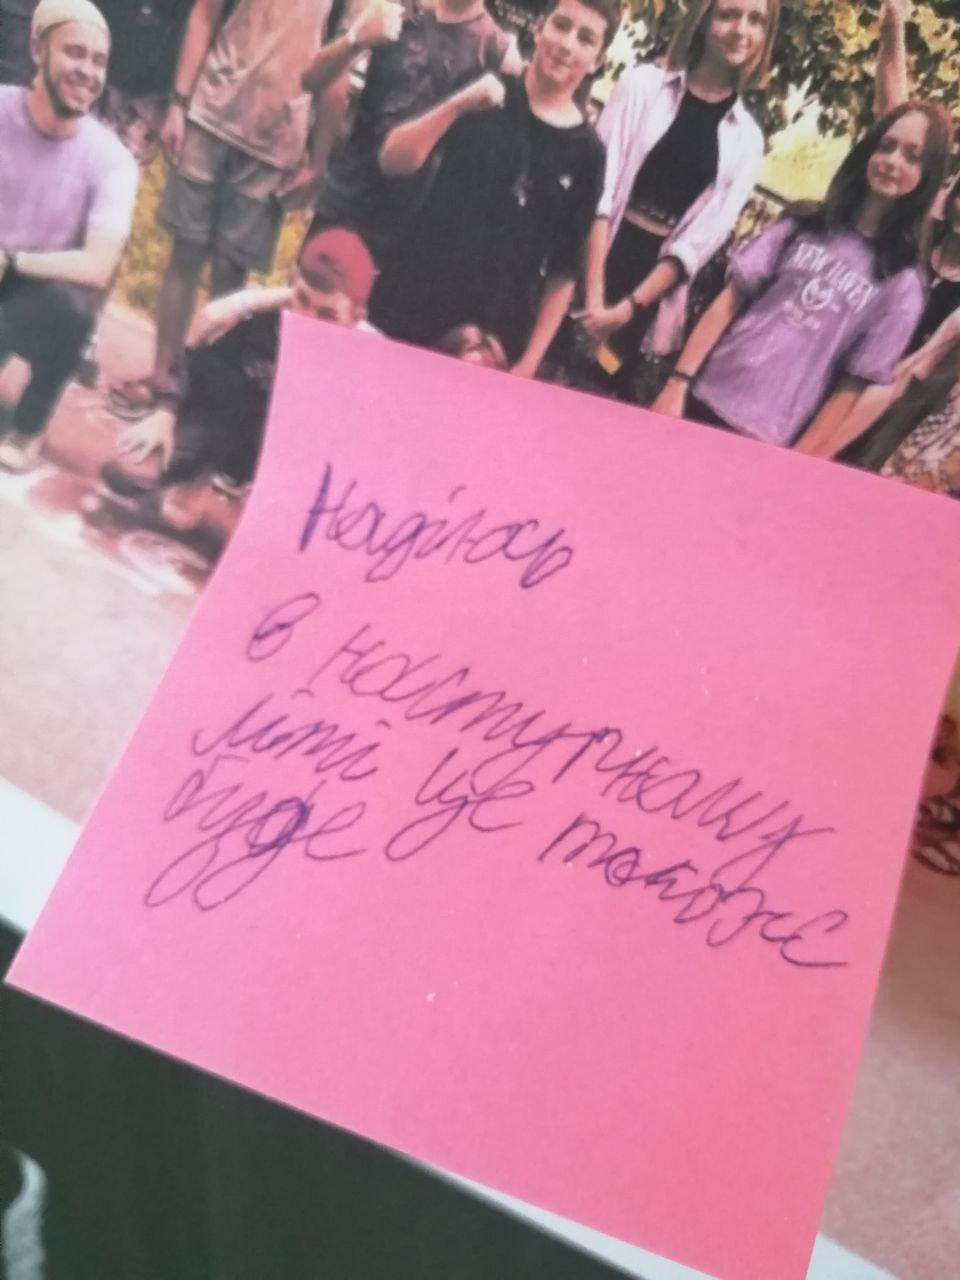 NEW HAVEN
Надіюсь
в наступному
літі це також
буде